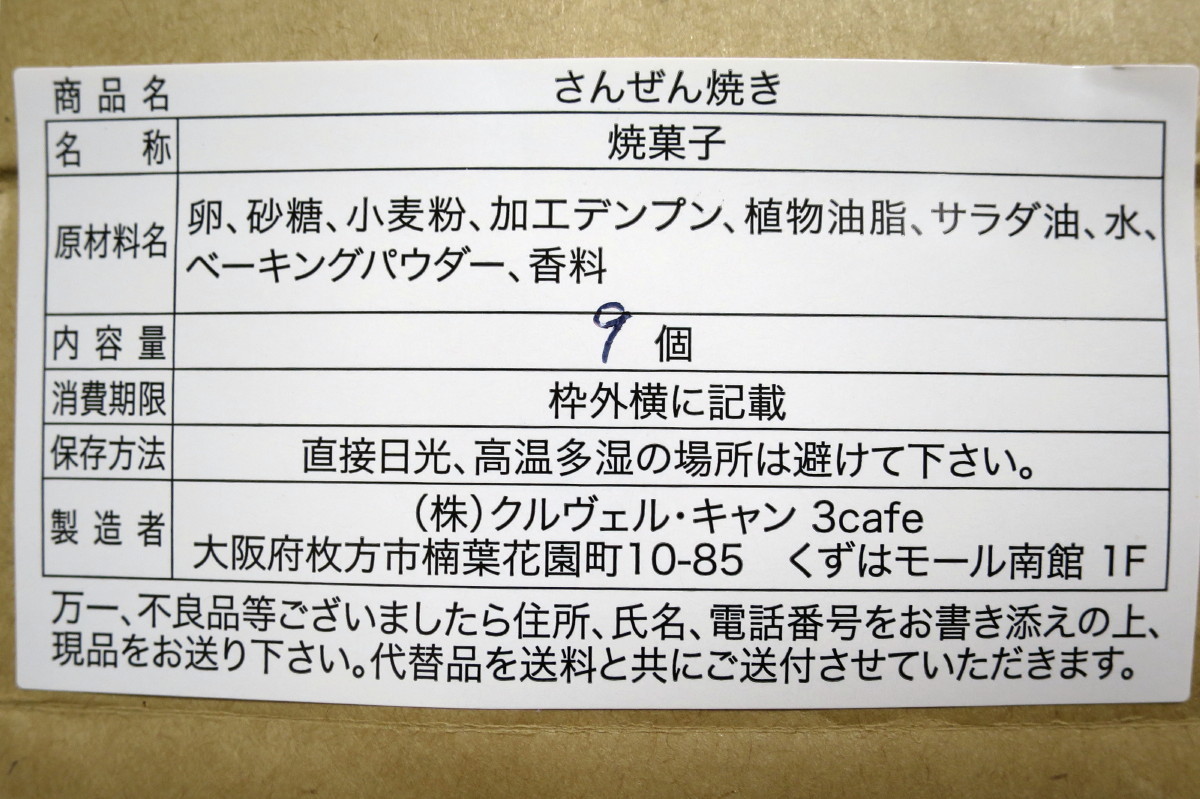 商品名 さんぜん焼き
名称 焼菓子
原材料名 卵、砂糖、小麦粉、加工デンプン、植物油脂、サラダ油、水、
ベーキングパウダー、香料
内容量 9 個
消費期限 枠外横に記載
保存方法 直接日光、高温多湿の場所は避けて下さい。
製造者 （株）クルヴェル・キャン 3cafe
大阪府枚方市楠葉花園町10-85　くずはモール南館 1F
万一、不良品等ございましたら住所、氏名、電話番号をお書き添えの上、
現品をお送り下さい。代替品を送料と共にご送付させていただきます。